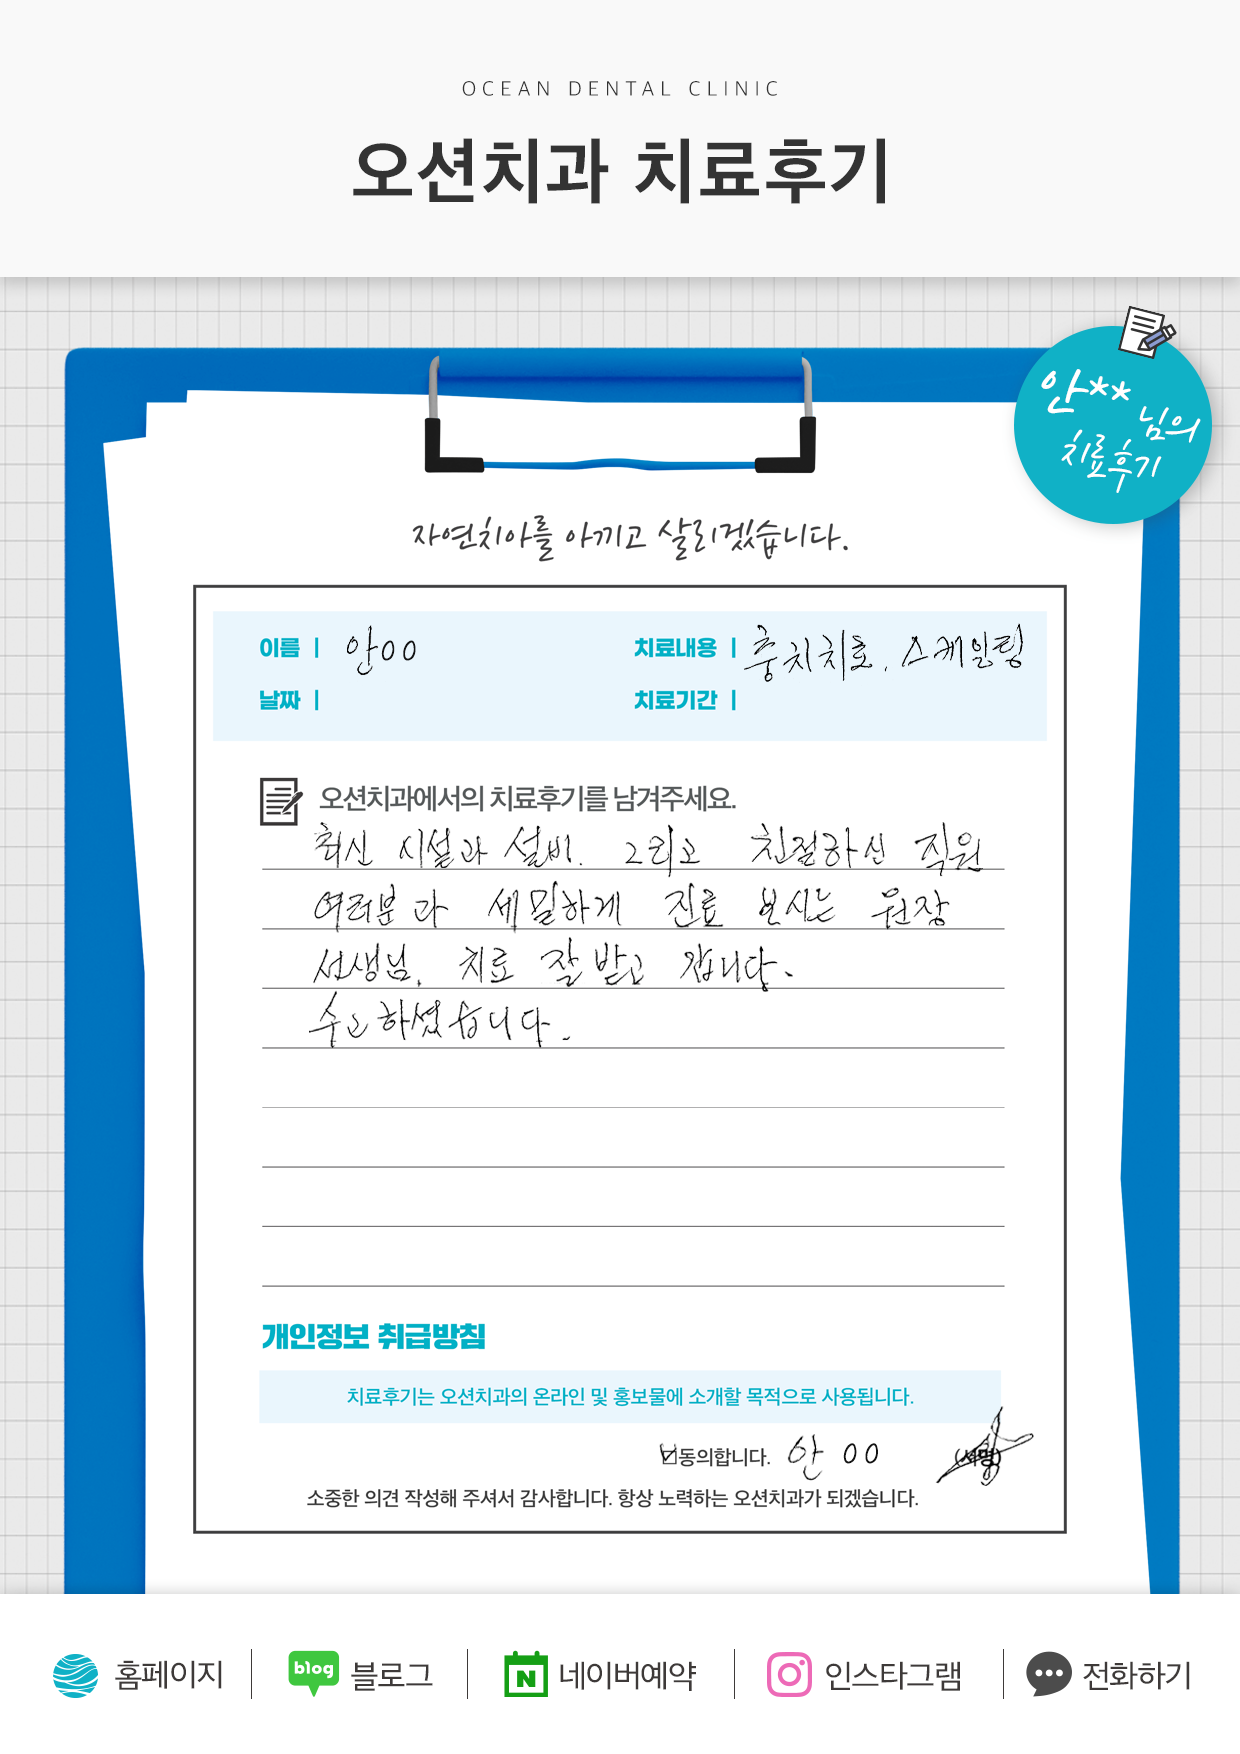 OCEAN DENTAL CLINIC
오션치과 치료후기
안** 님의
치료후기
자연치아를 아끼고 살리겠습니다.
이름 | 안OO
치료내용 | 충치치료, 스케일링
날짜 |
치료기간 |
오션치과에서의 치료후기를 남겨주세요.
최신 시설과 설비. 그리고 친절하신 직원
여러분과 세밀하게 진료 보시는 원장
선생님, 치료 잘 받고 갑니다.
수고하셨습니다.
개인정보 취급방침
치료후기는 오션치과의 온라인 및 홍보물에 소개할 목적으로 사용됩니다.
동의합니다. 안 OO (서명)
소중한 의견 작성해 주셔서 감사합니다. 항상 노력하는 오션치과가 되겠습니다.
홈페이지 | blog 블로그 | N 네이버예약 | 인스타그램 | 전화하기